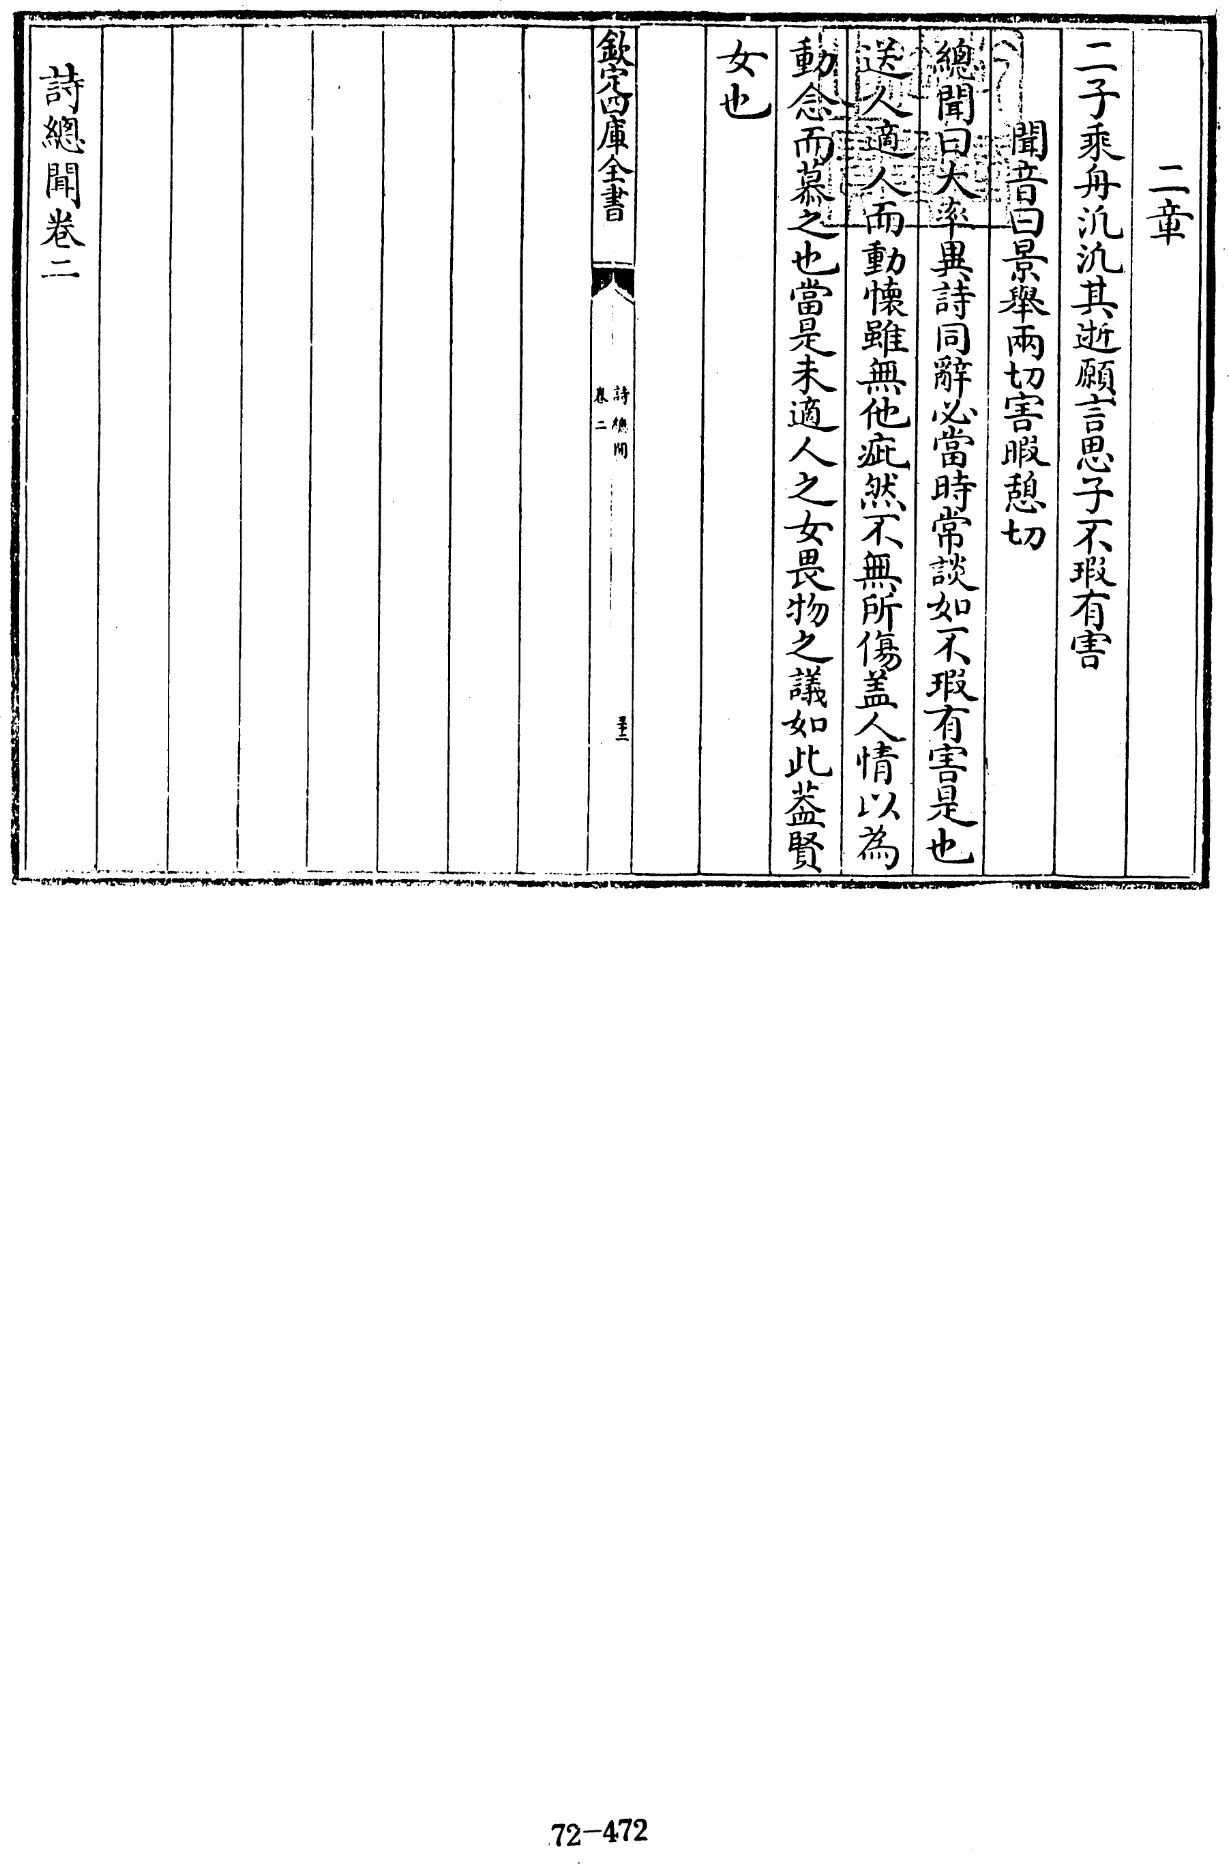 二章
二子乘舟汎汎其逝願言思子不瑕有害
聞音曰景舉兩切害暇憩切
總聞曰大率異詩同辭必當時常談如不瑕有害是也
送人適人而動懷雖無他疵然不無所傷盖人情以為
動念而慕之也當是未適人之女畏物之議如此葢賢
女也
欽定四庫全書
詩總聞
卷二
詩總聞卷二
72-472